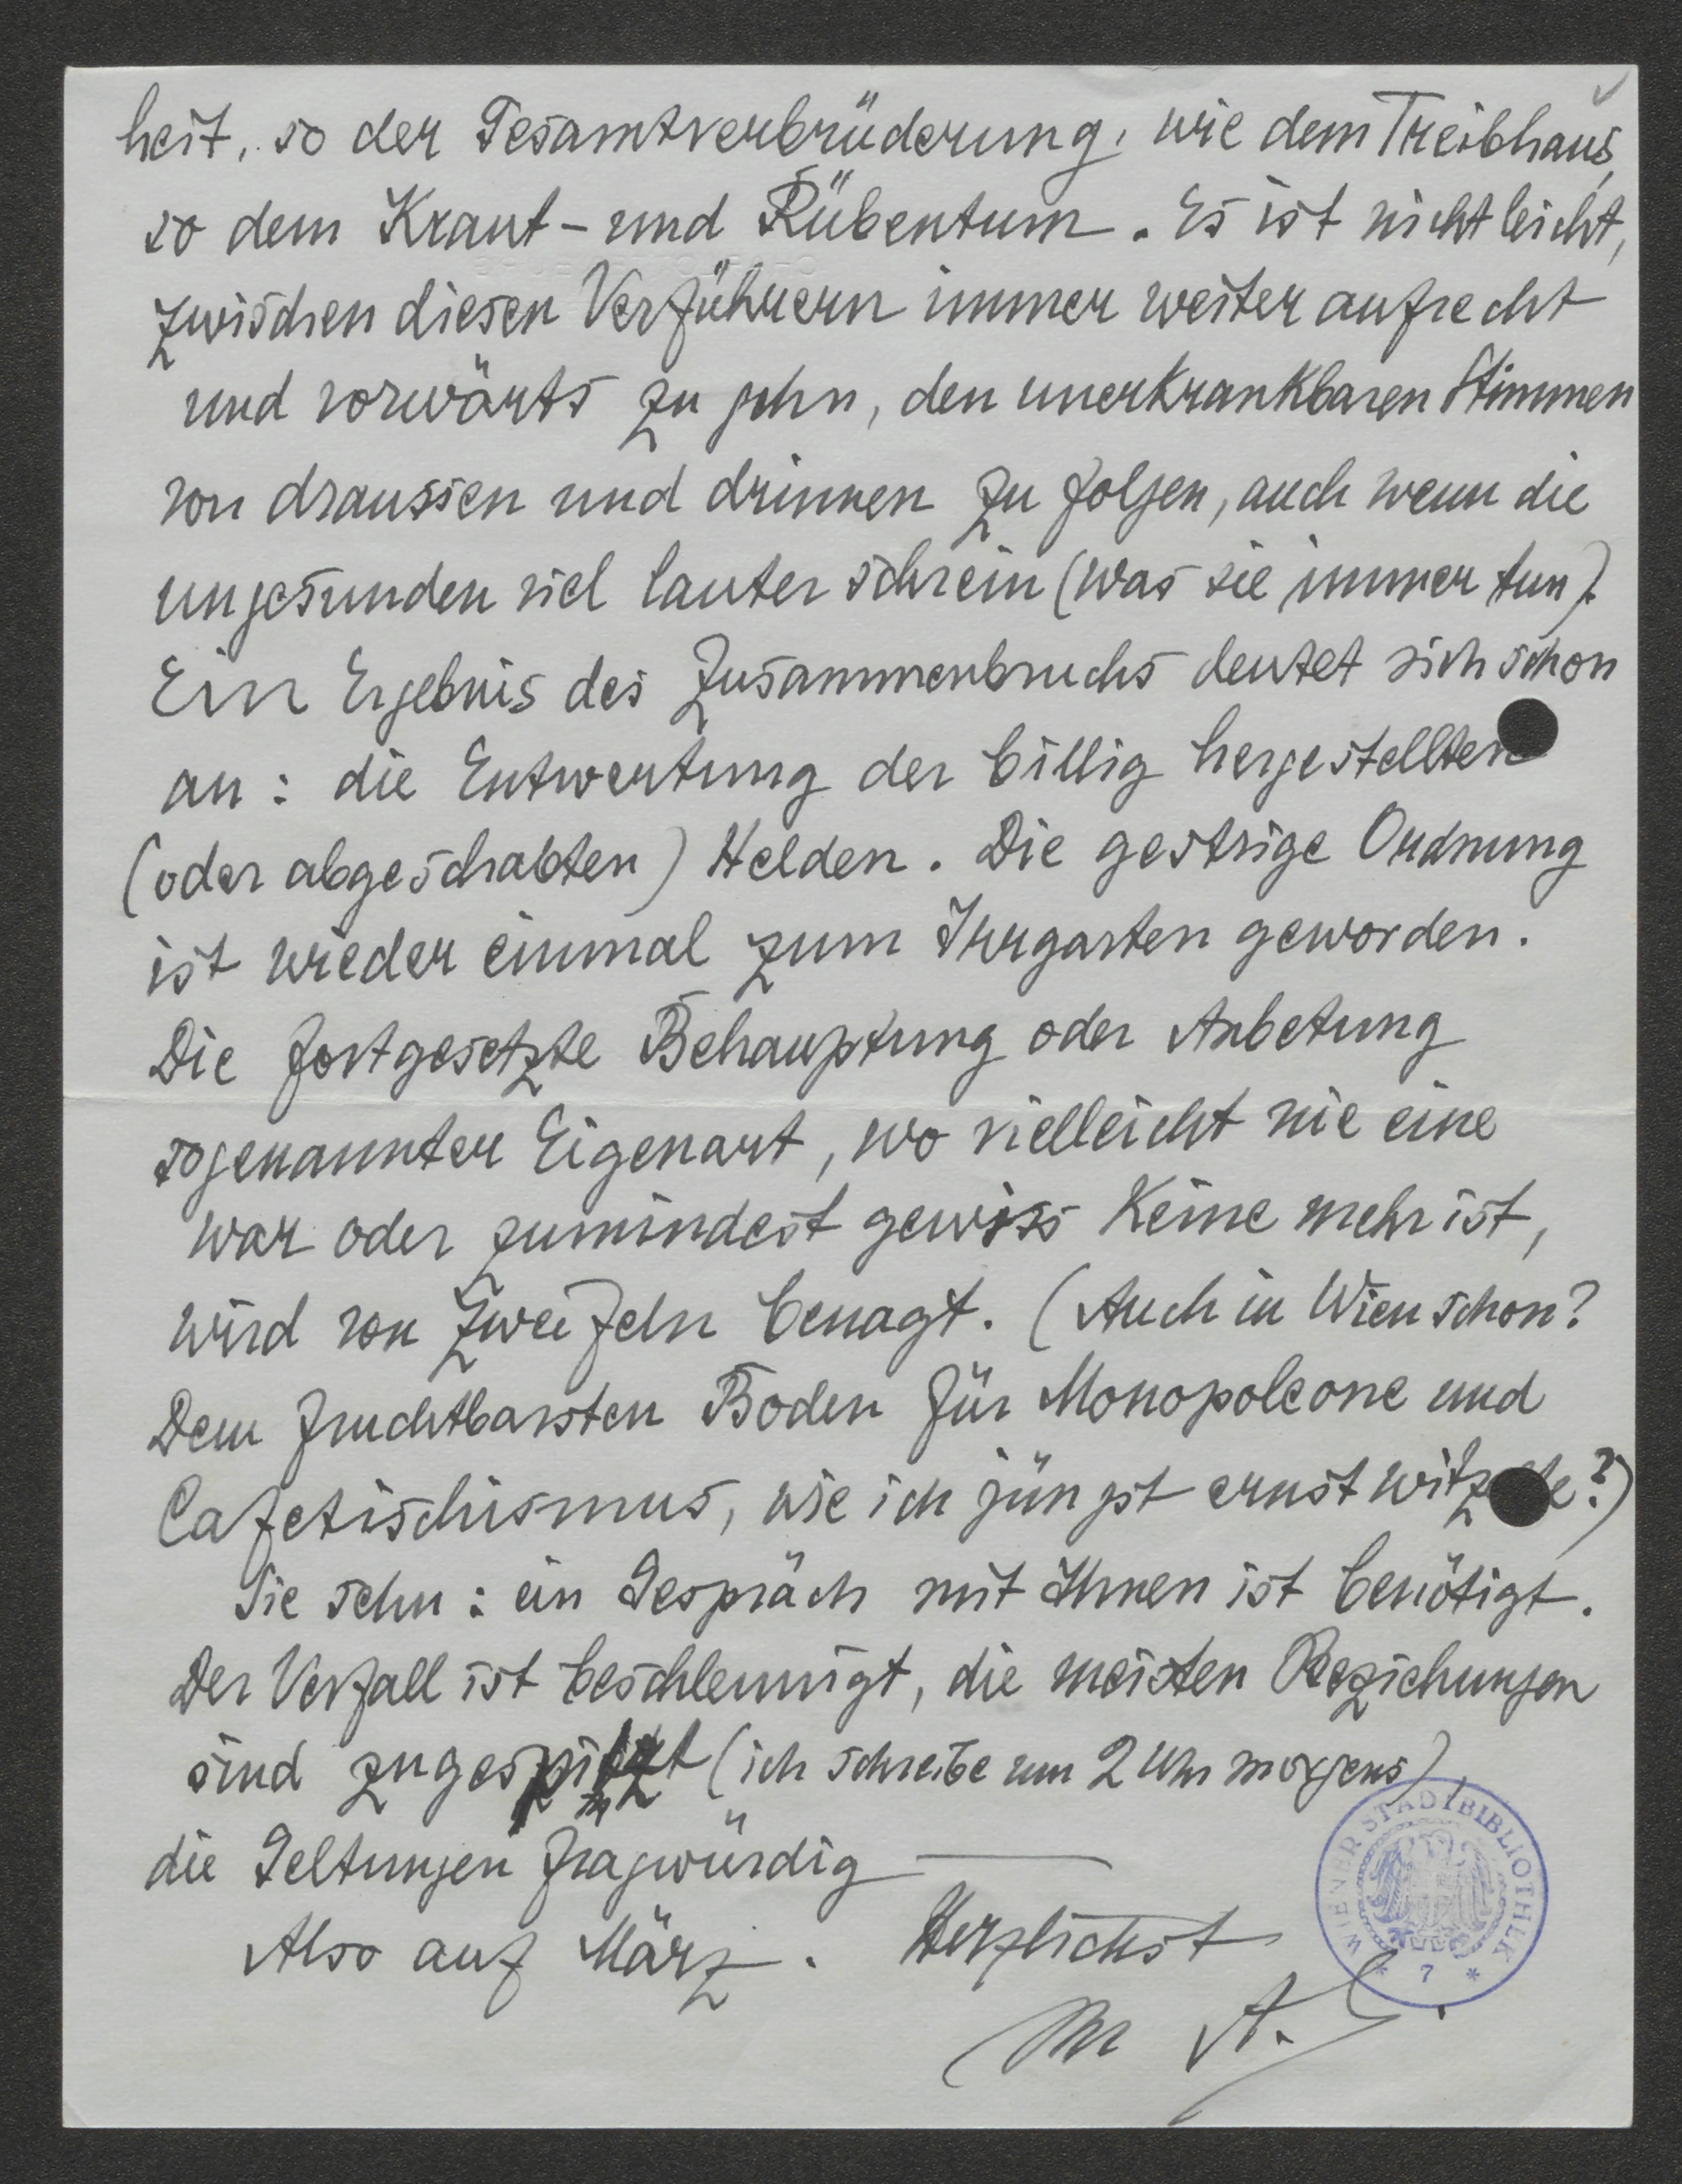 heit, so der Gesamtverbrüderung, wie dem Treibhaus,
so dem Kraut- und Rübentum. Es ist nicht leicht,
zwischen diesen Verführern immer weiter aufrecht
und vorwärts zu gehn, den unerkrankbaren Stimmen
von draussen und drinnen zu folgen, auch wenn die
ungesunden viel lauter schrein (was sie immer tun).
Ein Ergebnis des Zusammenbruchs deutet sich schon
an: die Entwertung der billig hergestellten
(oder abgeschabten) Helden. Die gestrige Ordnung
ist wieder einmal zum Irrgarten geworden.
Die fortgesetzte Behauptung oder Anbetung
sogenannter Eigenart, wo vielleicht nie eine
war oder zumindest gewiss keine mehr ist,
wird von Zweifeln benagt. (Auch in Wien schon?
Dem fruchtbarsten Boden für Monopoleone und
Cafetischismus, wie ich jüngst ernst witzelte?)
Sie sehn: ein Gespräch mit Ihnen ist benötigt.
Der Verfall ist beschleunigt, die meisten Beziehungen
sind zugespitzt (ich schreibe um 2 Uhr morgens),
die Geltungen fragwürdig —
Also auf März. Herzlichst
Ihr A.
WIENER STADTBIBLIOTHEK
* 7 *